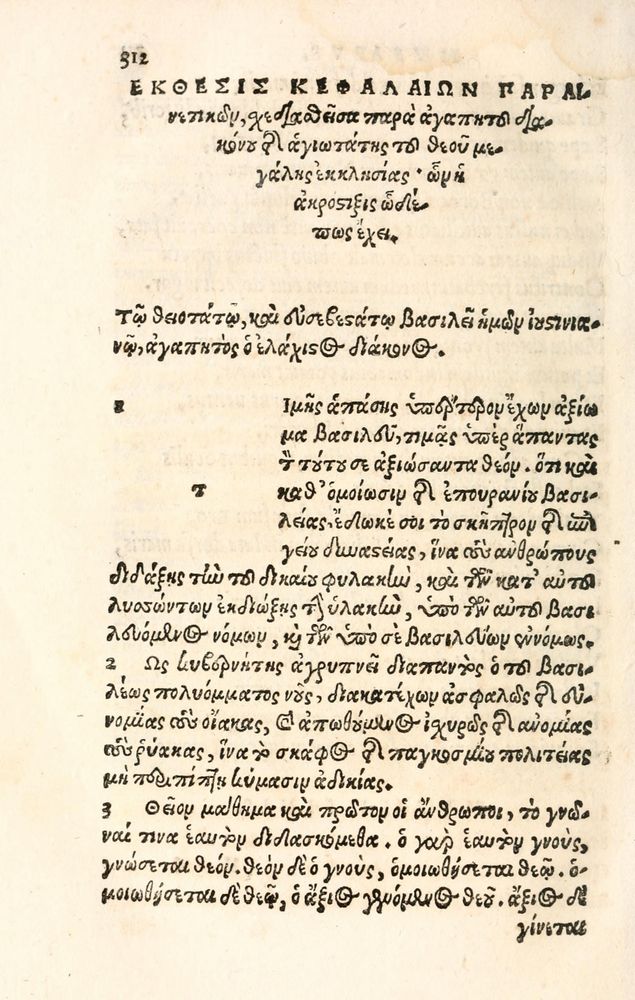 312
ΕΚΘΕΣΙΣ ΚΕΦΑΛΑΙΩΝ ΠΑΡΑΙ-
νετικῶν, σχεδιασθεῖσα παρὰ ἀγαπητοῦ δια-
κόνου τῆς ἁγιωτάτης τοῦ θεοῦ με-
γάλης ἐκκλησίας· ὧν ἡ
ἀκροστιχὶς ὧδέ
πως ἔχει.
Τῷ θειοτάτῳ, καὶ εὐσεβεστάτῳ βασιλεῖ ἡμῶν ἰουστινια-
νῷ, ἀγαπητὸς ὁ ἐλάχιστος διάκονος.
1 Ιμῆς ἁπάσης ὑπέρτερον ἔχων ἀξίω
μα βασιλεῦ, τιμᾷς ὑπὲρ ἅπαντας
τὸν τούτου σε ἀξιώσαντα θεόν. ὅτι καὶ
Τ καθ' ὁμοίωσιν τῆς ἐπουρανίου βασι-
λείας, ἔδωκέ σοι τὸ σκῆπτρον τῆς ἐπι
γείου δυναστείας, ἵνα τοὺς ἀνθρώπους
διδάξῃς τὴν τοῦ δικαίου φυλακὴν, καὶ τῶν κατ' αὐτοῦ
λυσσώντων ἐκδιώξῃς τὴν ὑλακὴν, ὑπὸ τῶν αὐτοῦ βασι
λευόμενος νόμων, καὶ τῶν ὑπὸ σὲ βασιλεύων ἐννόμως.
2 Ως κυβερνήτης ἀγρυπνεῖ διαπαντὸς ὁ τοῦ βασι-
λέως πολυόμματος νοῦς, διακατέχων ἀσφαλῶς τῆς εὐ-
νομίας τοὺς οἴακας, καὶ ἀπωθούμενος ἰσχυρῶς τῆς ἀνομίας
τοὺς ῥύακας, ἵνα τὸ σκάφος τῆς παγκοσμίου πολιτείας
μὴ περιπίπτῃ κύμασιν ἀδικίας.
3 Θεῖον μάθημα καὶ πρῶτον οἱ ἄνθρωποι, τὸ γνῶ-
ναί τινα ἑαυτὸν διδασκόμεθα. ὁ γὰρ ἑαυτὸν γνοὺς,
γνώσεται θεόν. θεὸν δὲ ὁ γνοὺς, ὁμοιωθήσεται θεῷ. ὁ-
μοιωθήσεται δὲ θεῷ, ὁ ἄξιος γενόμενος θεοῦ. ἄξιος δὲ
γίνεται